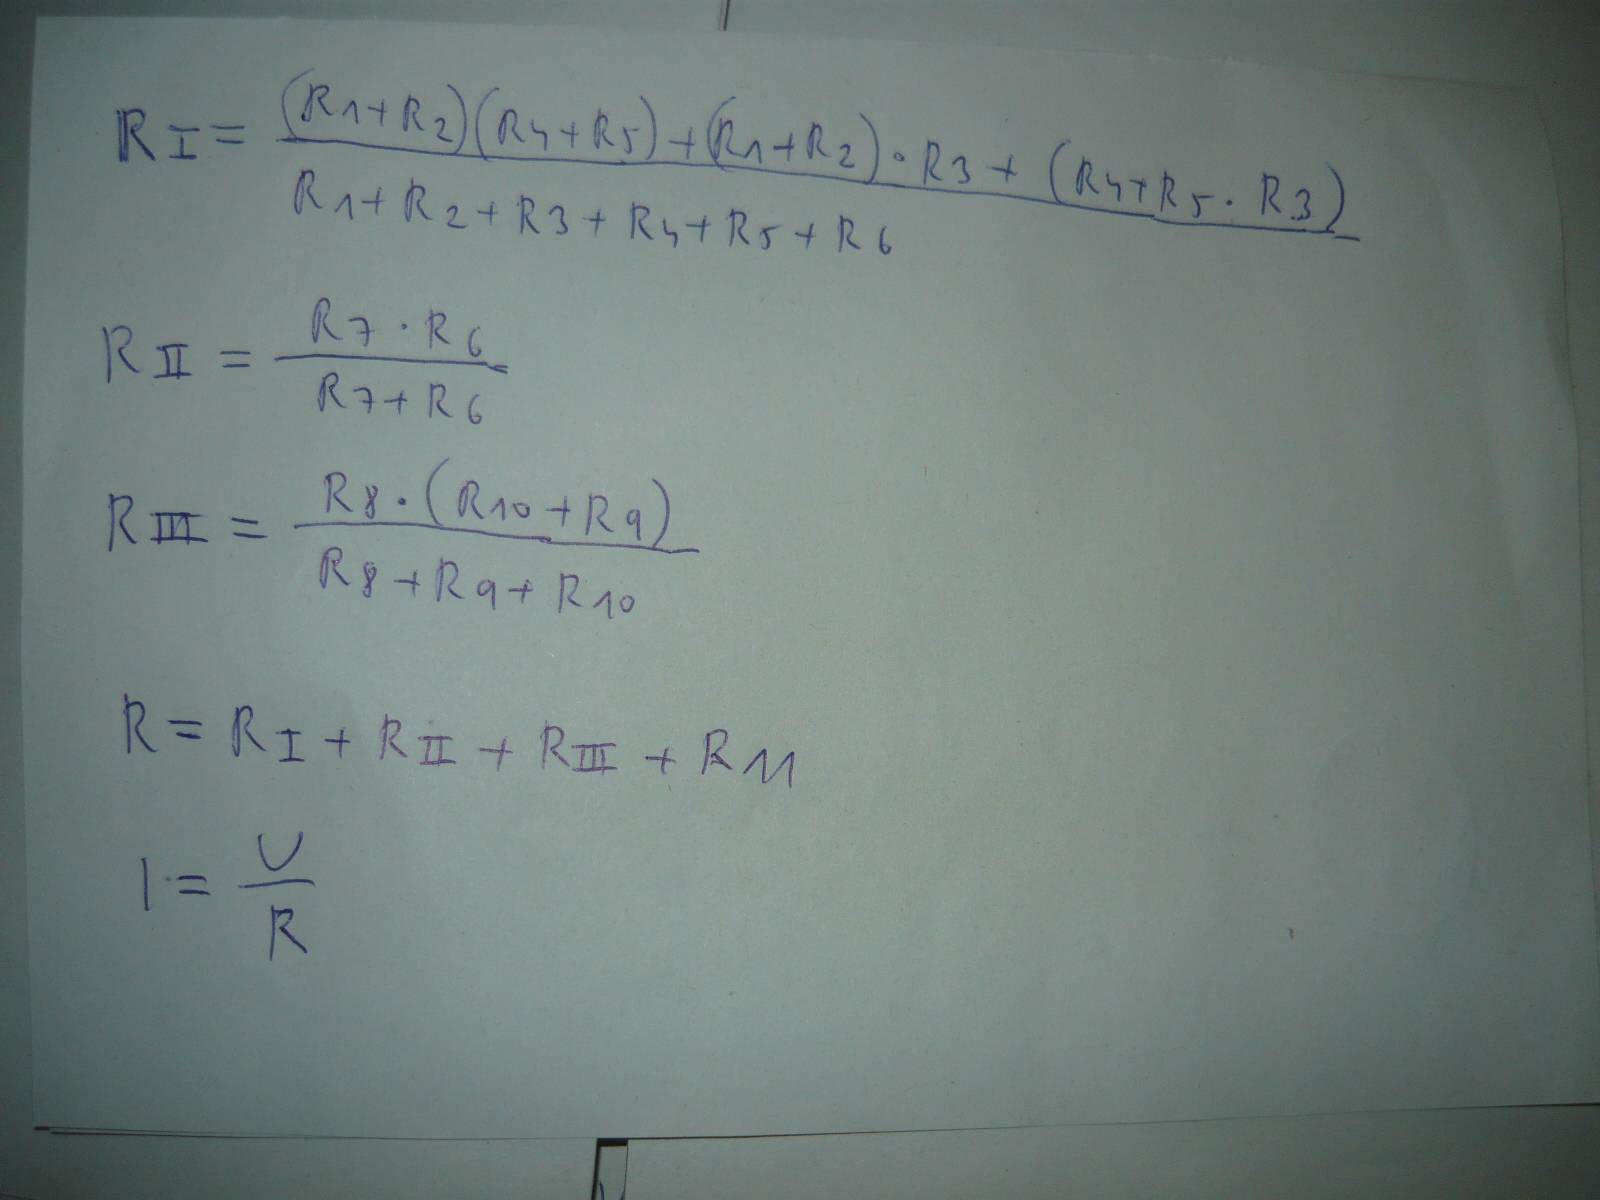 RI = (R1+R2)(R4+R5)+(R1+R2)·R3+(R4+R5·R3)
R1+R2+R3+R4+R5+R6
RII = R7·R6
R7+R6
RIII = R8·(R10+R9)
R8+R9+R10
R=RI+RII+RIII+R11
I = U
R